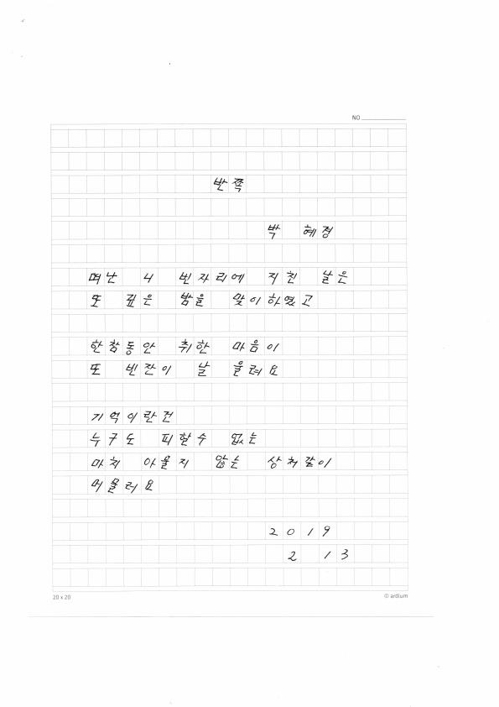 NO
반쪽
박 혜정
떠난 니 빈자리에 지친 날은
또 깊은 밤을 맞이하였고
한참동안 취한 마음이
또 빈잔이 날 울려요
기억이란건
누구도 피할수 없는
마치 아물지 않는 상처같이
머물러요
2019
2 13
20 x 20
© aillium